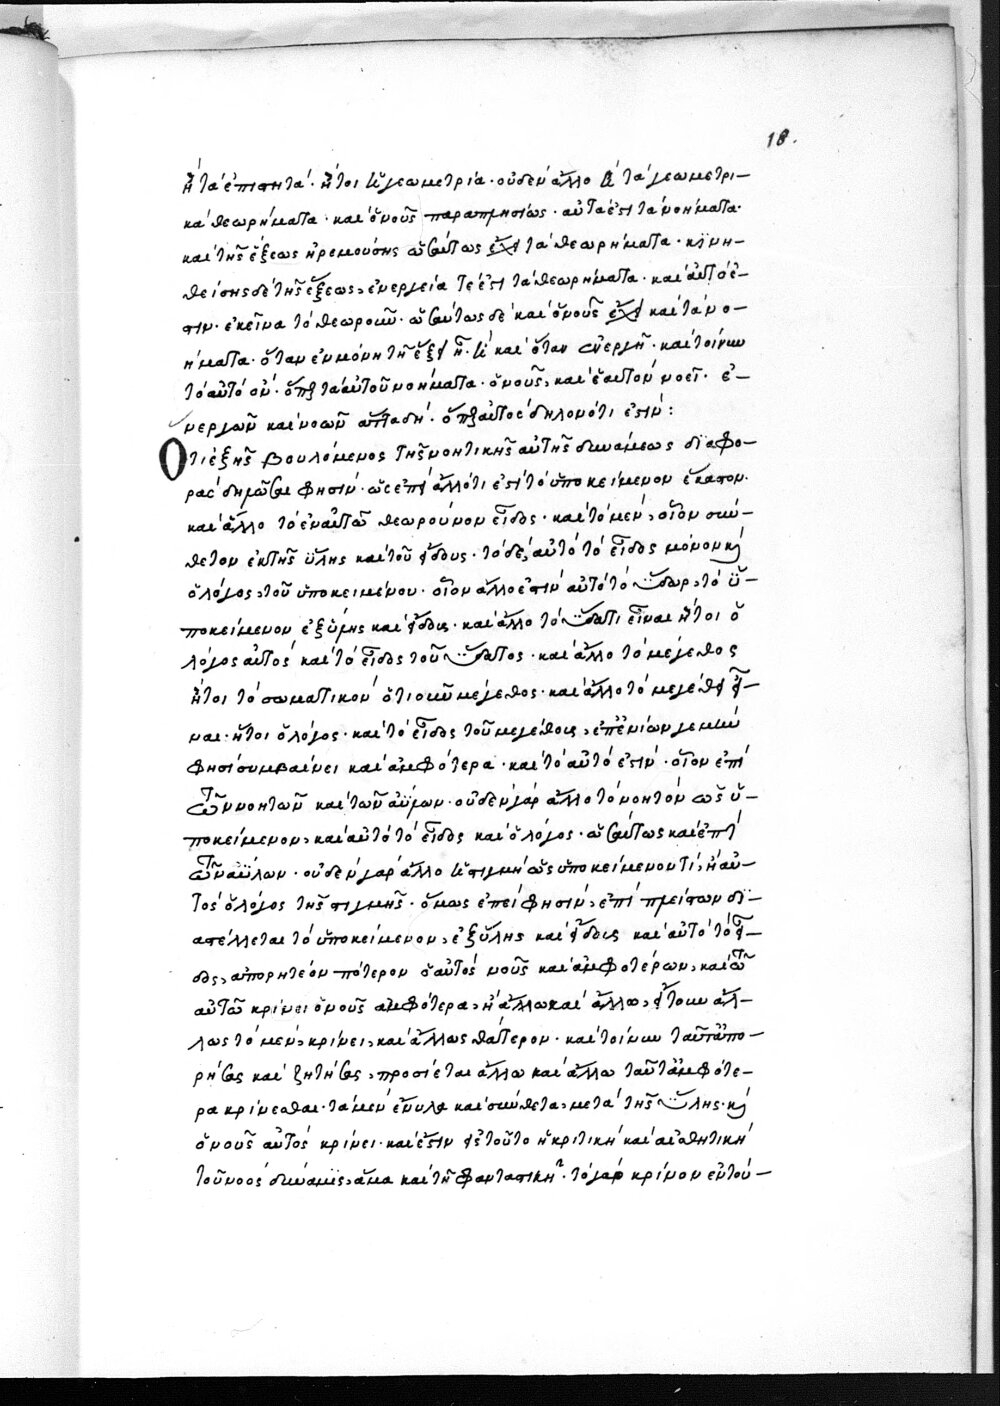 18.
ἢ τὰ ἐπιστητά· ἤτοι ἡ γεωμετρία· οὐδὲν ἄλλο ἢ τὰ γεωμετρι-
κὰ θεωρήματα· καὶ ὁ νοῦς παραπλησίως· αὐτά ἐστι τὰ νοήματα·
καὶ τῆς ἕξεως ἠρεμούσης ὡσαύτως ἔχει τὰ θεωρήματα· κϊνη-
θείσης δὲ τῆς ἕξεως, ἐνεργείᾳ τέ ἐστι τὰ θεωρήματα· καὶ αὐτό ἐ-
στιν· ἐκεῖνα τὸ θεωροῦν· ὡσαύτως δὲ καὶ ὁ νοῦς ἔχει καὶ τὰ νο-
ήματα· ὅταν ἐν μόνῃ τῇ ἕξει ᾖ· ἢ καὶ ὅταν ἐνεργῇ· καὶ τοίνυν
τὸ αὐτὸ ὄν· ὅπερ τὰ αὐτοῦ νοήματα· ὁ νοῦς, καὶ ἑαυτὸν νοεῖ· ἐ-
νεργῶν καὶ νοῶν ἅττα δή· ὅπερ αὐτὸς δηλονότι ἐστίν:
Ὅτι ἑξῆς βουλόμενος τῆς νοητικῆς αὐτῆς δυνάμεως δϊαφο-
ρὰς δηλῶσαι φησίν· ὡς ἐπεὶ ἄλλό τι ἐστὶ τὸ ὑποκείμενον ἕκαστον·
καὶ ἄλλο τὸ ἐν αὐτῶ θεωρούμενον εἶδος· καὶ τὸ μὲν, οἷον σύν-
θετον ἐκ τῆς ὕλης καὶ τοῦ εἴδους· τὸ δὲ, αὐτὸ τὸ εἶδος μόνον καὶ
ὁ λόγος, τοῦ ὑποκειμένου· οἷον ἄλλο ἐστὶν αὐτὸ τὸ ὕδωρ, τὸ ὑ-
ποκείμενον ἐξ ὕλης καὶ εἴδους· καὶ ἄλλο τὸ ὕδατι εἶναι ἤτοι ὁ
λόγος αὐτὸς καὶ τὸ εἶδος τοῦ ὕδατος· καὶ ἄλλο τὸ μέγεθος
ἤτοι τὸ σωματικὸν ὁτιοῦν μέγεθος· καὶ ἄλλο τὸ μεγέθει εἶ-
ναι· ἤτοι ὁ λόγος· καὶ τὸ εἶδος τοῦ μεγέθους, ἐπ' ἐνίων γε μὴν
φησὶ συμβαίνει καὶ ἀμφότερα· καὶ τὸ αὐτό ἐστίν· οἷον ἐπὶ
τῶν νοητῶν καὶ τῶν ἀΰλων· οὐδὲν γὰρ ἄλλο τὸ νοητὸν ὡς ὑ-
ποκείμενον, καὶ αὐτὸ τὸ εἶδος καὶ ὁ λόγος· ὡσαύτως καὶ ἐπὶ
τῶν ἀΰλων· οὐδὲν γὰρ ἄλλο ἡ στιγμὴ ὡς ὑποκείμενον τί, ἢ αὐ-
τὸς ὁ λόγος τῆς στιγμῆς· ὅμως ἐπεί φησιν, ἐπὶ πλείστων δϊ-
αστέλλεται τὸ ὑποκείμενον, ἐξ ὕλης καὶ εἴδους καὶ αὐτὸ τὸ εἶ-
δος, ἀπορητέον πότερον ὁ αὐτὸς νοῦς καὶ ἀμφοτέρων, καὶ τῶ
αὐτῶ κρίνει ὁ νοῦς ἀμφότερα, ἢ ἄλλω καὶ ἄλλω, εἴτουν ἄλ-
λως τὸ μὲν, κρίνει, καὶ ἄλλως θάτερον· καὶ τοίνυν ταῦτ' ἀπο-
ρήσας καὶ ζητήσας, προσίεται ἄλλω καὶ ἄλλω ταῦτ' ἀμφότε-
ρα κρίνεσθαι· τὰ μὲν ἔνυλα καὶ σύνθετα, μετὰ τῆς ὕλης· καὶ
ὁ νοῦς αὐτὸς κρίνει· καὶ ἔστιν εἰς τοῦτο ἡ κριτικὴ καὶ αἰσθητικὴ
τοῦ νοὸς δύναμϊς, ἅμα καὶ τῆ φανταστικῆ· τὸ γὰρ κρῖνον ἐν τού-